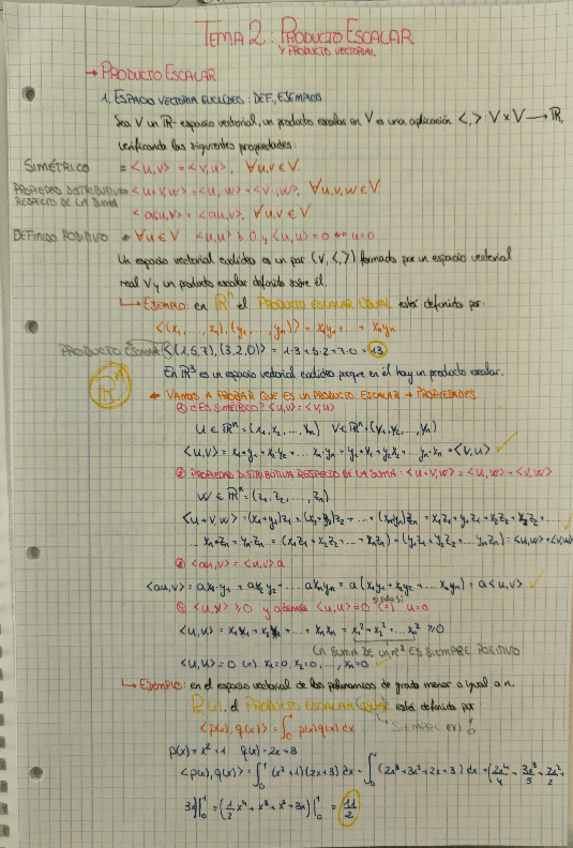 TEMA 2: PRODUCTO ESCALAR
Y PRODUCTO VECTORIAL
→ PRODUCTO ESCALAR
1. ESPACIO VECTORIAL EUCLÍDEO: DEF, EJEMPLOS
Sea V un ℝ-espacio vectorial, un producto escalar en V es una aplicación <,>: V×V → ℝ,
verificando las siguientes propiedades:
SIMÉTRICO = <u,v> = <v,u>, ∀u,v∈V
PROPIEDAD DISTRIBUTIVA = <u+v,w> = <u,w> + <v,w>, ∀u,v,w∈V
RESPECTO DE LA SUMA
<au,v> = <au,v>, ∀u,v∈V
DEFINIDO POSITIVO ∀u∈V <u,u> ≥ 0 y <u,u> = 0 ⇔ u=0
Un espacio vectorial euclídeo es un par (V,<,>) formado por un espacio vectorial
real V y un producto escalar definido sobre él.
↳ EJEMPLO: en ℝⁿ el PRODUCTO ESCALAR USUAL está definido por:
<(x₁,...,xₙ),(y₁,...,yₙ)> = x₁y₁+...+xₙyₙ
PRODUCTO ESCALAR <(1,5,7),(3,2,0)> = 1·3+5·2+7·0 = 13
En ℝ³ es un espacio vectorial euclídeo porque en él hay un producto escalar.
ℝⁿ
VAMOS A PROBAR QUE ES UN PRODUCTO ESCALAR → PROPIEDADES
① ¿ES SIMÉTRICO? <u,v> = <v,u>
u∈ℝⁿ = (x₁,x₂,...,xₙ) v∈ℝⁿ = (y₁,y₂,...,yₙ)
<u,v> = x₁·y₁ + x₂·y₂ + ... xₙ·yₙ = y₁·x₁ + y₂x₂ + ... yₙ·xₙ = <v,u> ✓
② PROPIEDAD DISTRIBUTIVA RESPECTO DE LA SUMA: <u+v,w> = <u,w> + <v,w>
w∈ℝⁿ = (z₁,z₂,...,zₙ)
<u+v,w> = (x₁+y₁)z₁ + (x₂+y₂)z₂ + ... + (xₙ+yₙ)zₙ = x₁z₁ + y₁z₁ + x₂z₂ + y₂z₂ + ...
. xₙ+zₙ + yₙzₙ = (x₁z₁ + x₂z₂ + ... + xₙzₙ) + (y₁z₁ + y₂z₂ + ... yₙzₙ) = <u,w> + <v,w>
③ <au,v> = <u,v>a
<au,v> = ax₁·y₁ + ax₂y₂ + ... axₙyₙ = a(x₁y₁ + x₂y₂ + ... xₙyₙ) = a<u,v> ✓
④ <u,u> ≥ 0 y además <u,u> = 0 (=) u=0
<u,u> = x₁x₁ + x₂x₂ + ... + xₙxₙ = x₁² + x₂² + ... xₙ² ≥ 0
LA SUMA DE un nº² ES SIEMPRE POSITIVO
<u,u> = 0 (=) x₁=0, x₂=0, ..., xₙ=0 ✓
↳ EJEMPLO: en el espacio vectorial de los polinomios de grado menor o igual a n.
el PRODUCTO ESCALAR USUAL está definido por:
<p(x),q(x)> = ∫₀¹ p(x)q(x) dx
SIEMPRE EN ∫₀¹
p(x) = x²+1 q(x) = 2x+3
<p(x),q(x)> = ∫₀¹ (x²+1)(2x+3) dx = ∫₀¹ (2x³+3x²+2x+3) dx = (2x⁴/4 + 3x³/3 + 2x²/2 +
3x)|₀¹ = (1/2 x⁴ + x³ + x² + 3x)|₀¹ = 11/2